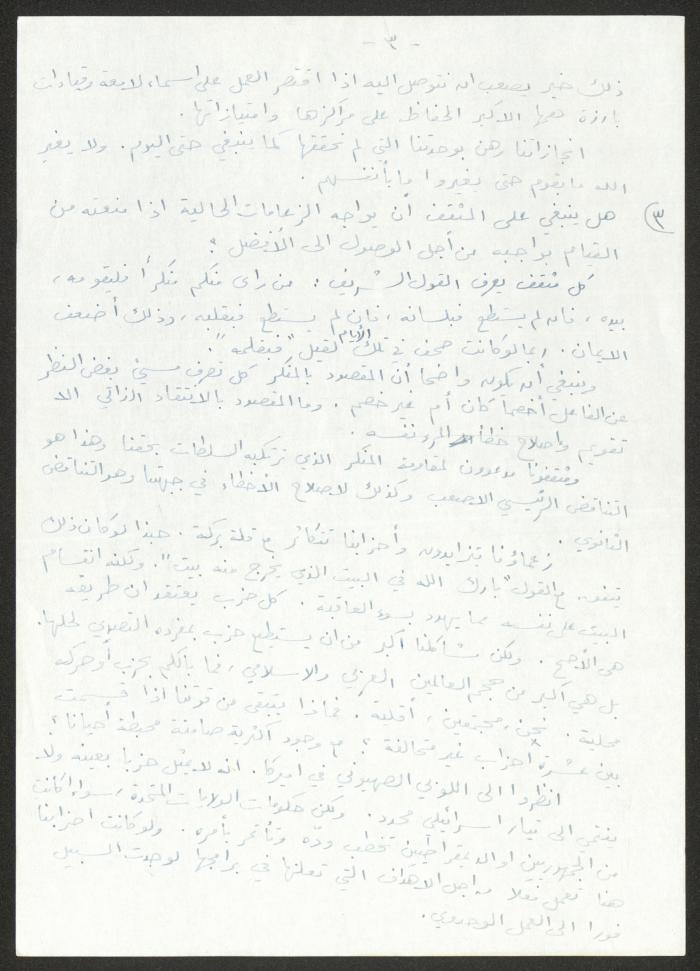 - ٣ -
ذلك خير يصعب ان نتوصل اليه اذا اقتصر العمل على اسماء لامعة وقيادات
بارزة همها الاكبر الحفاظ على مراكزها وامتيازاتها.
انجازاتنا رهن بوحدتنا التي لم نحققها كما ينبغي حتى اليوم. ولا يغير
الله ما بقوم حتى يغيروا ما بأنفسهم.
٣) هل ينبغي على المثقف أن يواجه الزعامات الحالية اذا منعته من
القيام بواجبه من أجل الوصول الى الأفضل؟
كل مثقف يعرف القول الشريف: من رأى منكم منكراً فليقومه
بيده، فان لم يستطع فبلسانه، فان لم يستطع فبقلبه، وذلك أضعف
الايمان. ربما لو كانت صحف في تلك الأيام لقيل "فبقلمه".
وينبغي أن يكون واضحا أن المقصود بالمنكر كل تصرف مسيئ بغض النظر
عن الفاعل أخصماً كان أم غير خصم. وما المقصود بالانتقاد الذاتي الا
تقويم واصلاح خطأ المرء نفسه.
ومثقفونا مدعوون لمقاومة المنكر الذي ترتكبه السلطات بحقنا وهذا هو
التناقض الرئيسي الاصعب وكذلك لاصلاح الاخطاء في جبهتنا وهو التناقض
الثانوي.
زعماؤنا يتزايدون وأحزابنا تتكاثر مع قلة بركة. حبذا لو كان ذلك
يتفق مع القول "بارك الله في البيت الذي يخرج منه بيت". ولكنه انقسام
البيت على نفسه مما يهدد بسوء العاقبة. كل حزب يعتقد ان طريقه
هي الأصح. ولكن مشاكلنا أكبر من ان يستطيع حزب بمفرده التصدي لحلها.
بل هي أكبر من حجم العالمين العربي والاسلامي، فما بالكم بحزب أو حركة
محلية. نحن، مجتمعين، أقلية. فماذا يتبقى من قوتنا اذا قسمت
بين عشرة أحزاب غير متحالفة؟ مع وجود أكثرية صامتة محبطة أحيانا؟
انظروا الى اللوبي الصهيوني في اميركا. انه لا يمثل حزبا بعينه ولا
ينتمي الى تيار اسرائيلي محدد. ولكن حكومات الولايات المتحدة، سواء اكانت
من الجمهوريين او الديمقراطيين تخطب ودّه وتأتمر بأمره. ولو كانت احزابنا
هنا تعمل فعلا من اجل الاهداف التي تعلنها في برامجها لوجدت السبيل
فورا الى العمل الوحدوي.